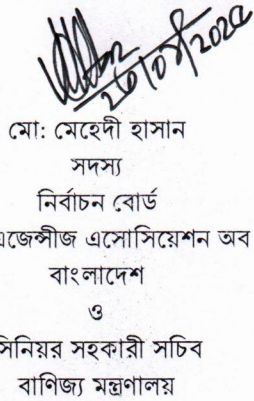 মো: মেহেদী হাসান
সদস্য
নির্বাচন বোর্ড
এজেন্সীজ এসোসিয়েশন অব
বাংলাদেশ
ও
সিনিয়র সহকারী সচিব
বাণিজ্য মন্ত্রণালয়